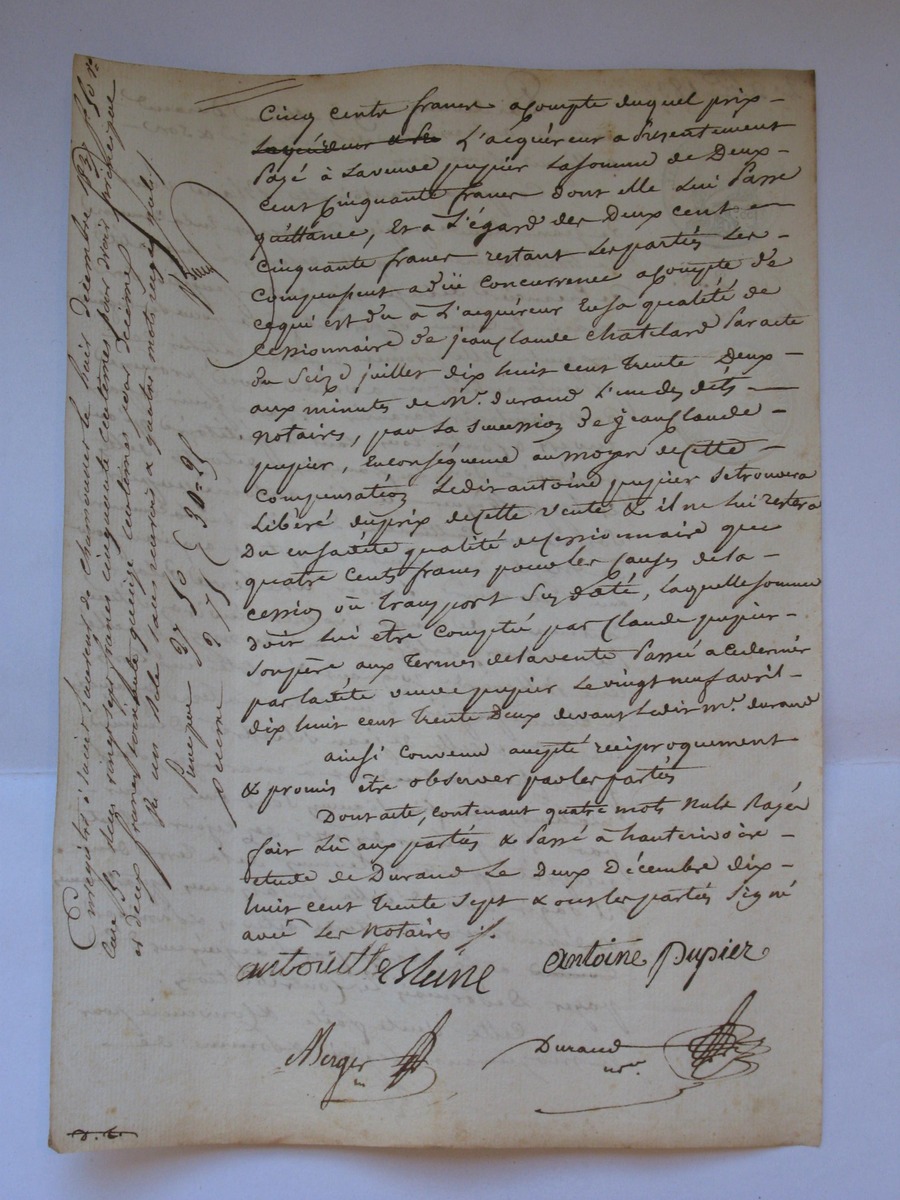 Cinq cents francs acompte duquel prix
L'acquéreur a présentement
Payé à Laveuve pupier Lasomme de Deux
cent Cinquante francs dont elle Lui Passe
quittance, Et a L'égard des Deux cent
cinquante francs restant Lesparties Les
Compensent a düe concurrence acompte de
cequi est dû a L'acquéreur Ensa qualité de
Cessionnaire de jeanClaude Chatelard Paracte
du Seize juillet dix huit cent trente Deux
aux minutes de Me. durand L'undesdits
notaires, par La succession de jeanClaude
pupier, Enconséquence aumoyen decette
Compensation Ledit antoine pupier setrouvera
Libéré duprix decette vente & il ne Lui restera
Du ensadite qualité decessionnaire que
quatre cents francs pourles Causes dela
cession ou transport Susdaté, laquellesomme
doit Lui être Comptée par Claude pupier
sonpère aux termes delavente Passée acedernier
parladite veuve pupier Levingt neuf avril
dix huit cent trente Deux devant Ledit me. durand
ainsi convenu accepté réciproquement
& promis être observer parlesparties
Dont acte, contenant quatre mots nuls Rayés
fait Lû aux parties & Passé à hauterivoire
etude de Durand Le Deux Décembre dix
huit cent trente Sept & ont lesparties Signé
avec Les notaires
antoinette
antoine pupier
Berger
Durand
nre.
Enregistré à Saint Laurent de Chamousset le huit décembre 1837 fo. 50
Case 5, reçu vingt sept francs cinquante centimes pour droit principal
et deux francs soixante quinze centimes pour décime,
quatre mots rayés nuls
principal 27 50
décime 2 75 { 30=25